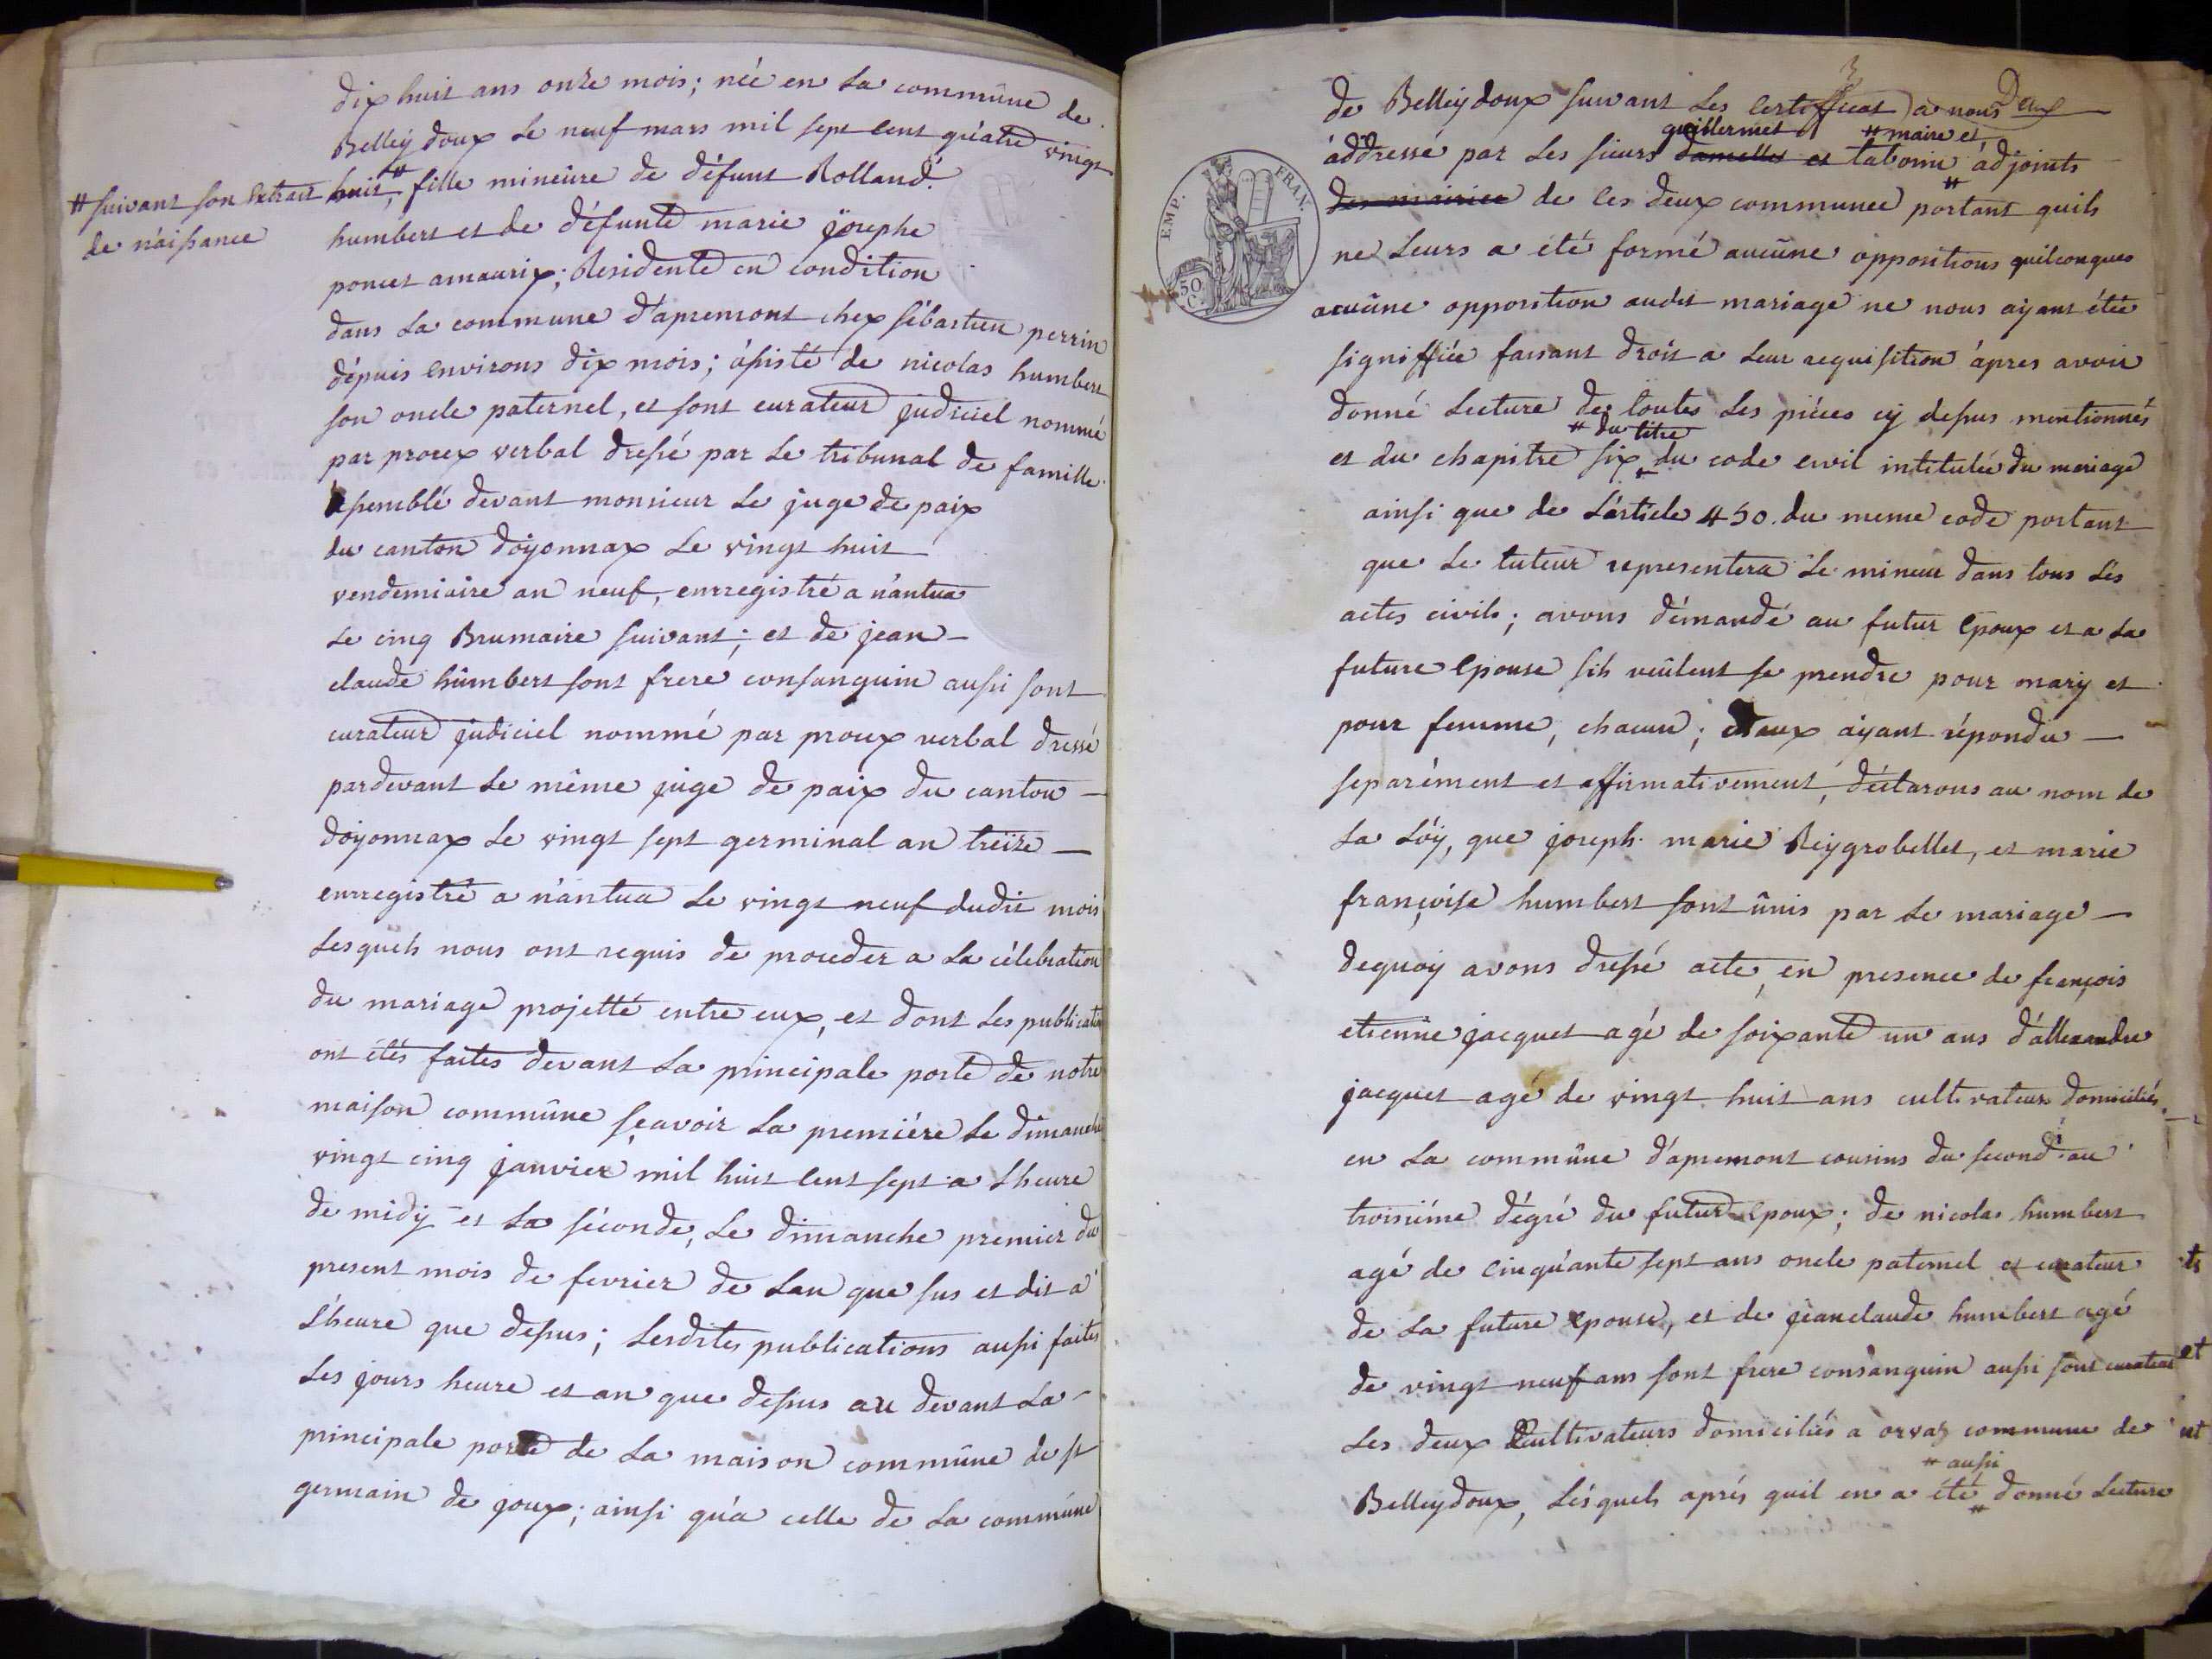 dix huit ans onze mois; née en la commûne de
Belleydoux le neuf mars mil sept cent quatre vingt
# suivant son extrait
de naissance
huit, # fille mineure de défunt Rolland
humbert et de défunte marie josephe
poncet amaurix; Residente en condition
dans la commune d'apremont chex sébastien perrin
dépuis environs dix mois; assisté de nicolas humbert
son oncle paternel, et sont curateur judiciel nommé
par procex verbal dressé par le tribunal de famille
assemblé devant monsieur le juge de paix
du canton doyonnax le vingt huit
vendemiaire an neuf, enrregistré a nantua
le cinq Brumaire suivant; et de jean
claude humbert sont frere consanguin aussi sont
curateur judiciel nommé par procex verbal dressé
pardevant le même juge de paix du canton
doyonnax le vingt sept germinal an treize
enrregistré a nantua le vingt neuf dudit mois
lesquels nous ont requis de proceder a la célebration
du mariage projetté entre eux, et dont les publication
ont étés faites devant la principale porte de notre
maison commûne sçavoir la premiére le dimanche
vingt cinq janvier mil huit cent sept a lheure
de midy et la séconde, le dimanche premier du
present mois de fevrier de lan que sus et dit a
lheure que dessus; lesdites publications aussi faites
les jours heure et an que dessus au devant la
principale porte de la maison commûne de st
germain de joux; ainsi qu'a celle de la commúne
3
Deux
de Belleydoux suivant les certifficat a nous
guillermet # maire et
áddressé par les sieurs damelles et tabome ádjoints
EMP. FRAN.
50 C.
des mairies de ces deux communes # portant quils
ne leurs a été formé aucûne oppositions quilconques
aucûne opposition audit mariage ne nous ayant étée
signiffiée faisant droit a leur requisition ápres avoir
donné lecture de toutes les piéces cy dessus mentionnés
# du titre
et du chapitre six # du code civil intitulée du mariage
ainsi que de l'article 450. du meme code portant
que le tuteur representera le mineur dans tous les
actes civils; avons démandé au futur epoux et a la
future epouse sils veûlent se prendre pour mary et
pour femme, chacun; deaux ayant répondu
separément et affirmativement, déclarons au nom de
la lóy, que joseph marie Reygrobellet, et marie
françoise humbert sont ûnis par le mariage
dequoy avons dressé acte, en presence de françois
etienne jacquet agé de soixante un ans d'allexandre
jacquet agé de vingt huit ans cultivateurs domiciliés
en la commûne d'apremont cousins du second au
troisiéme dégré du futur epoux; de nicolas humbert
agé de cinquante sept ans oncle paternel et curateur
de la future epouse, et de jeanclaude humbert agé
de vingt neuf ans sont frere consanguin aussi sont curateur
les deux Cultivateurs domiciliés a orvaz commune de
# aussi
Belleydoux, lésquels aprés quil en a été # donné lecture
ts
et
ut